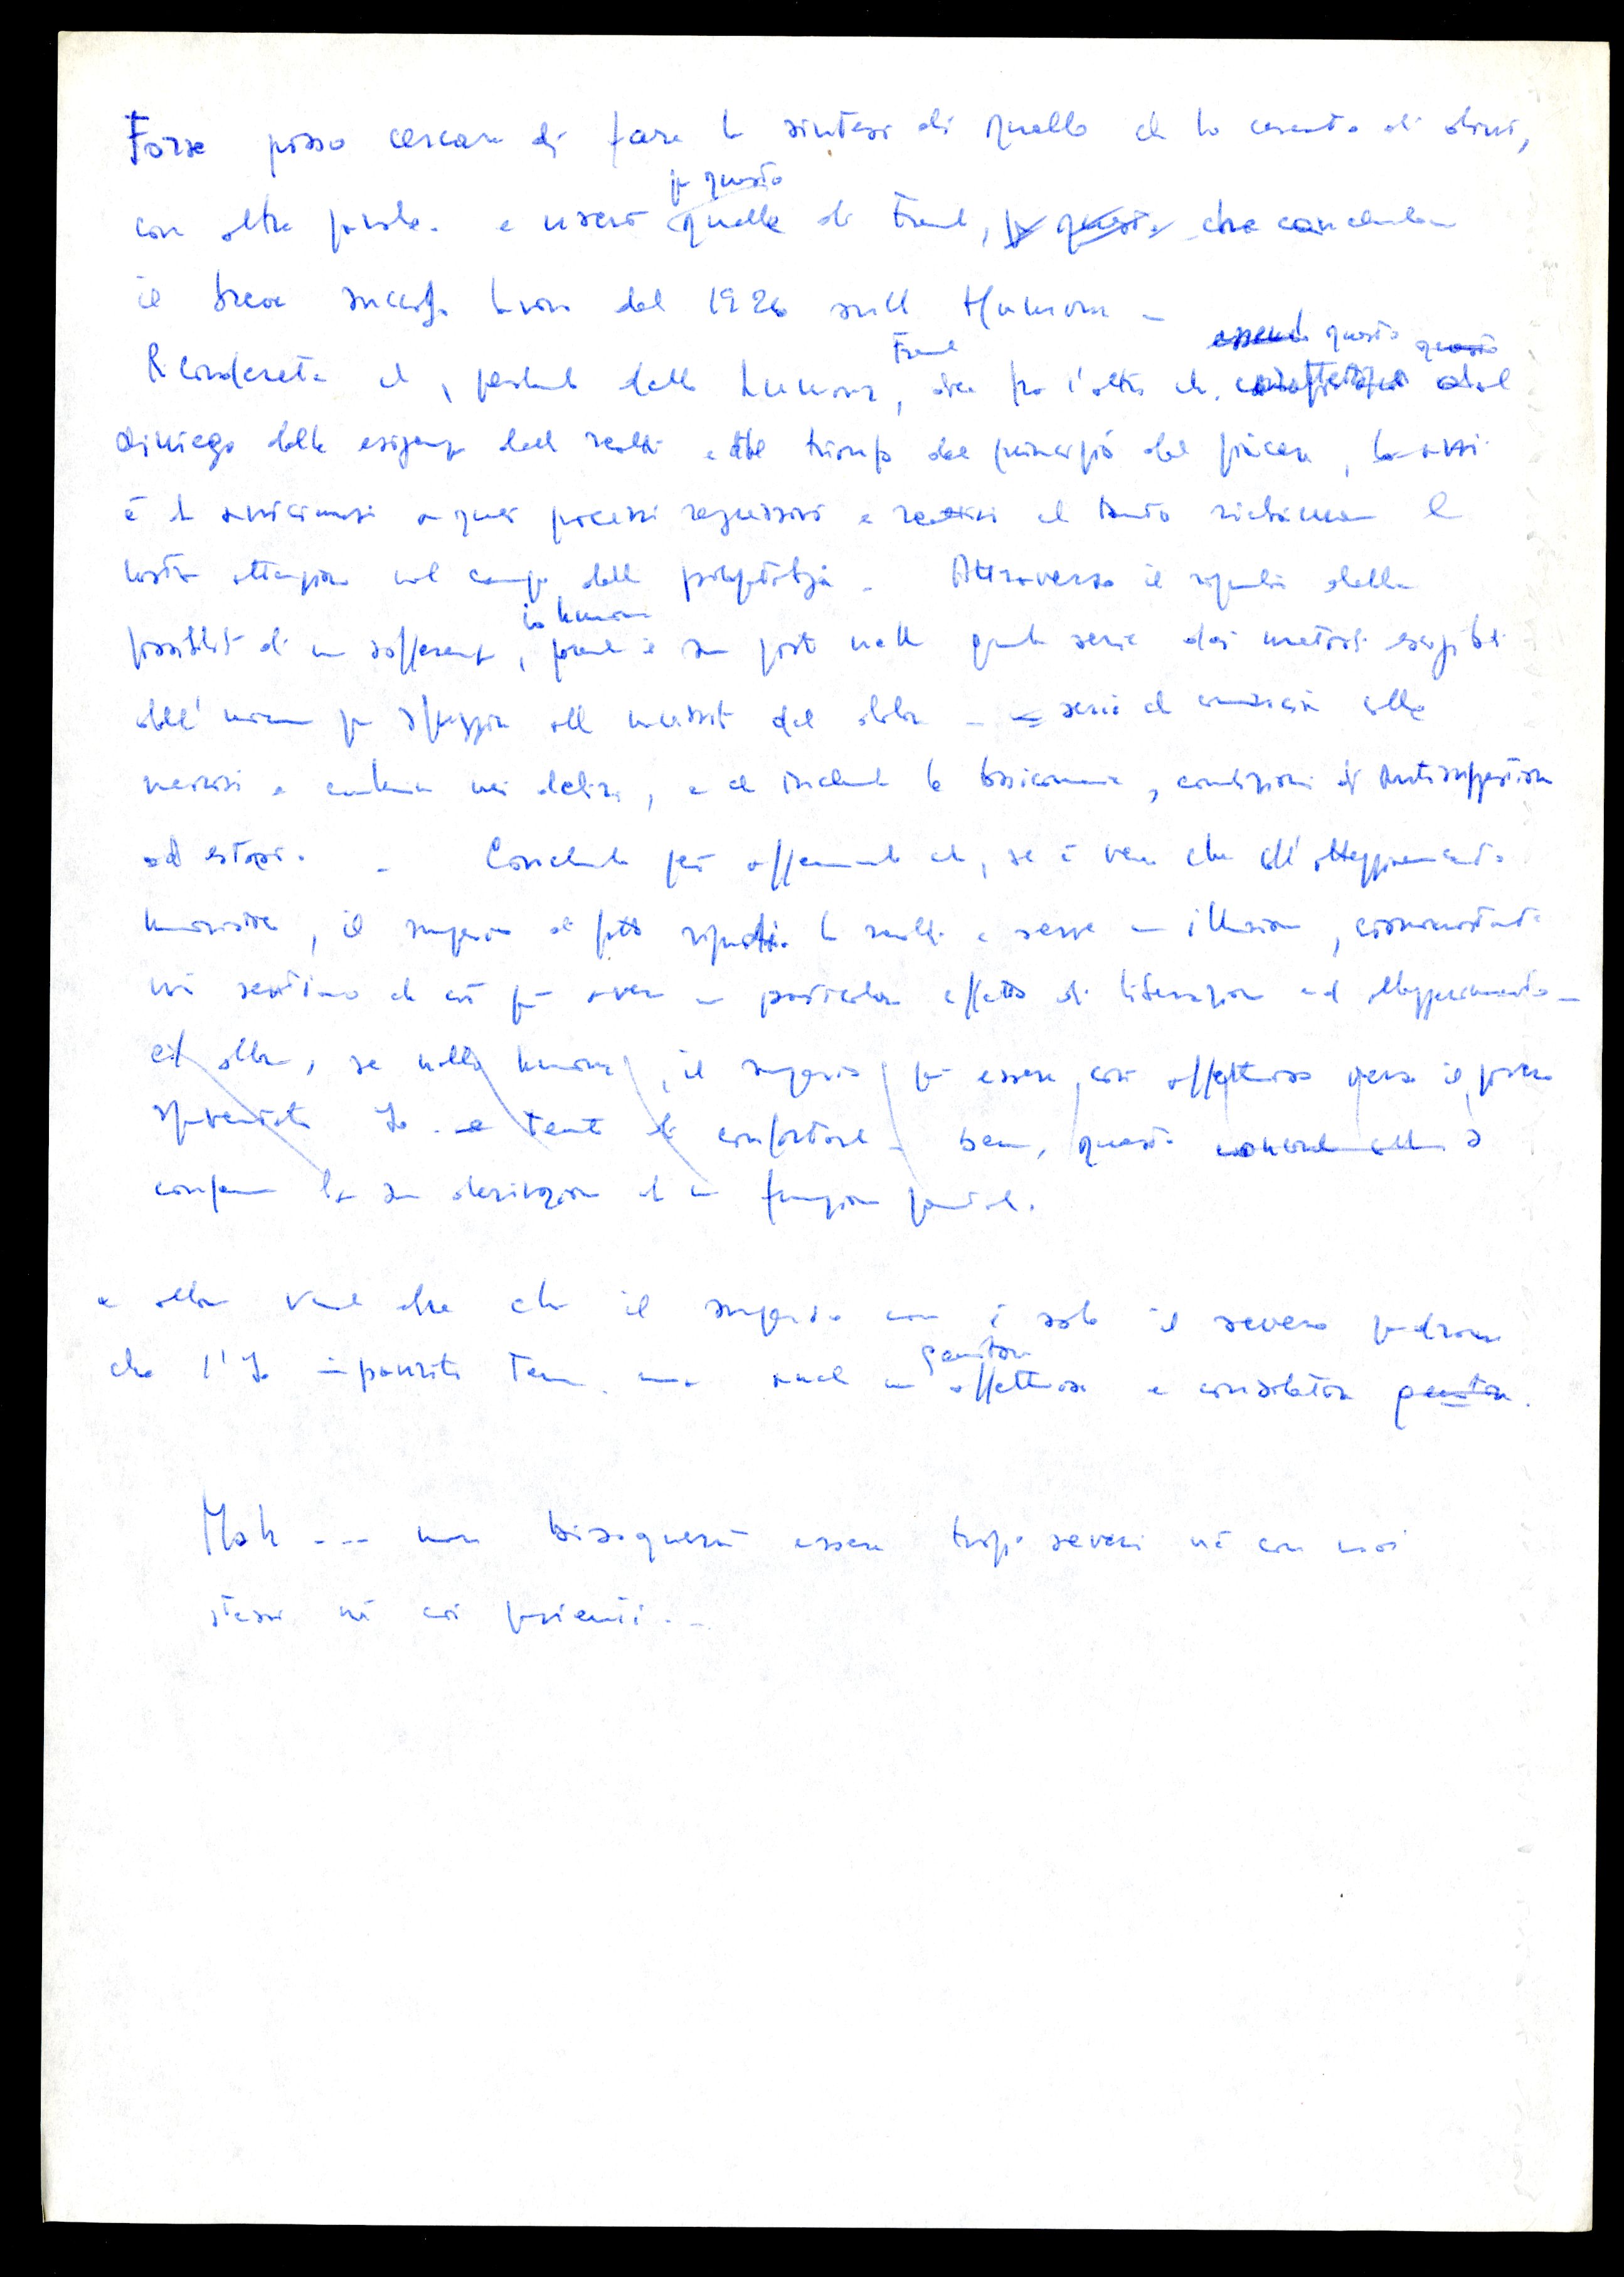 Forse posso cercare di fare la sintesi di quello che ho cercato di dirvi,
per questo
con altre parole. e userò quelle di Freud, per questo che concludono
il breve lavoro del 1926 sull Humour –
Freud essendo questo questo
Ricorderete che, parlando dello humour, dice fra l'altro che, caratterizzato dal
diniego delle esigenze della realtà e dal trionfo del principio del piacere, lo
è da avvicinarsi a quei processi regressivi e reattivi che tanto richiamano la
nostra attenzione nel campo della psicopatologia – Attraverso il ripudio della
lo humour
possibilità di una sofferenza, prende il suo posto nella grande serie dei metodi
dall'uomo per sfuggire alla necessità del dolore – serie che comincia colla
nevrosi e culmina nei deliri, e che include la condizioni di
ed estasi. – Conclude però affermando che, se è vero che all'atteggiamento
umoristico, il superio di fatto ripudia la realtà e serve un illusione, ciononostante
noi sentiamo che ciò può avere un particolare effetto di liberazione
ed allora, se nello humour, il superio può essere così affettuoso verso il povero
spaventato Io – e tenta di confortarlo – bene, questo
conferma la sua derivazione da una funzione parentale.
e allora vuol dire che il superio non è solo il severo padrone
genitore
che l'Io impaurito teme. ma anche un affettuoso e consolatore genitore.
Mah --- non bisognerà essere troppo severi né con noi
stessi né coi pazienti. –